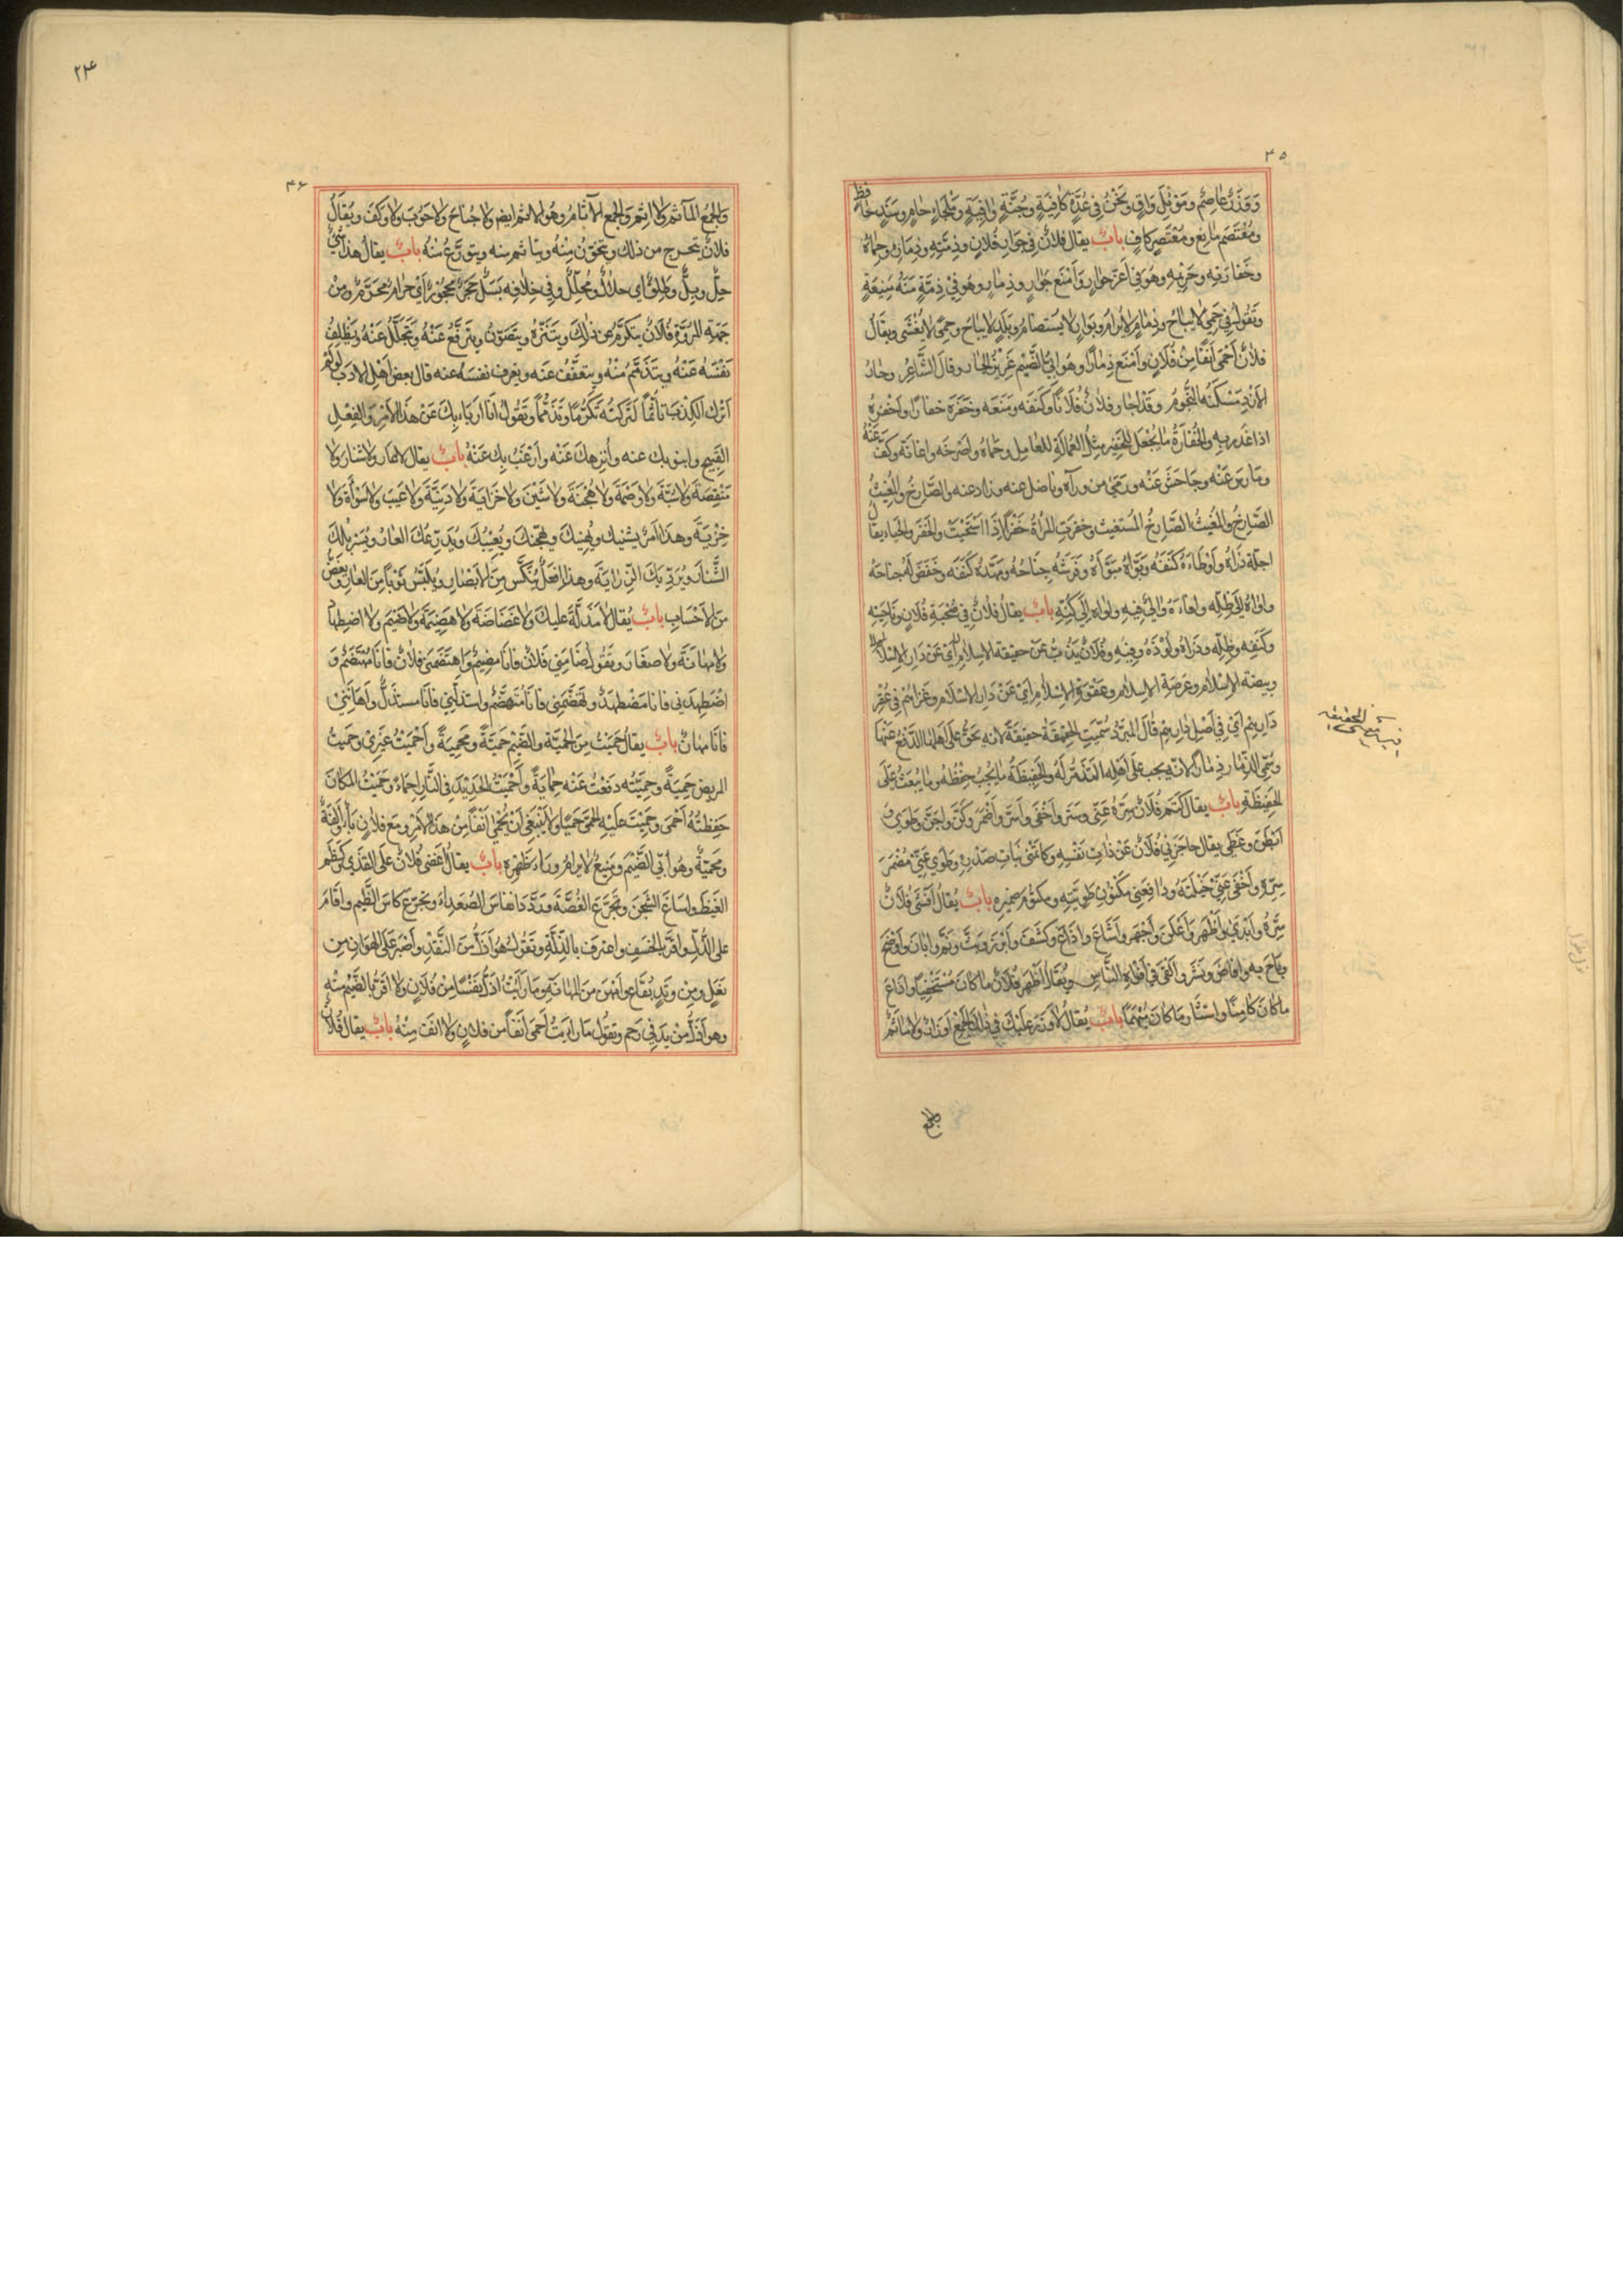 ٤٥
وَوَزَرٍ عاصِمٍ ومَوْئِلٍ وَاقٍ ونَحْنُ فِي عُدَّةٍ كافِيَةٍ وجُنَّةٍ واقِيَةٍ ومَلْجَاءٍ حامٍ وسَنَدٍ
ومُعْتَصَمٍ مانِعٍ ومُعْتَصَرٍ كافٍ بابٌ يقال فلانٌ في جِوارِ فُلانٍ وذِمَّتِهِ وذِمارِه وحِماهُ
وخَفارَتِهِ وحَرِيْمِهِ وهُوَ فِي اَعَزِّ جِوارٍ وَاَمْنَعِ جِوارٍ وذِمارٍ وهُوَ فِيْ ذِمَّةٍ مَنِيعَةٍ
وتَقُولُ فِي حِمىً لايُباحُ وذِمارٍ لايُرامُ وجِوارٍ لايُستَضامُ وبَلَدٍ لايُباحُ وحِمىً لايُغْشٰى ويقالُ
فلانٌ اَحْمٰى اَنْفًا مِنْ فُلانٍ واَمْنَعُ ذِمارًا وهُو اَبِيُّ الضَّيْمِ عَزِيْزُ الجارِ وقالَ الشَّاعِرُ وجارُ
الازدِ مَسْكَنُهُ النُّجُومُ وقد اَجارَ فلانٌ فُلانًا وكَنَفَه ومَنَعَه وخَفَرَه خفارًا واَخْفَرَهُ
اذا غَدَر بِهِ والخُفَارَةُ مايُجْعَلُ لِلخَفِيرِ مِثلُ العُمالَةِ لِلعَامِلِ وحَماهُ واَصْرَخَه واعانَه وكَفَّ عَنْهُ
وحارَبَ عَنْه وجَاحَشَ عَنْه ورَمٰى من ورآه وناضل عنه وذادعنه والصَّارِخُ والمُغِيثُ
الصَّارِخُ والمُغِيثُ الصَّارِخُ المُستغيث وخفرتِ المَرأةُ خَفَرًا اِذَا اسْتَحْيَتْ والخفَرُ الحَياءُ يقال
اَحلّه ذَراهُ واَوْطَاءَهُ كَنَفَهُ وبَوَّاهُ مَبَوَّأهُ وفَرَشَهُ جَناحَهُ ومَهَّدَهُ كَنَفَه وخَفَضَ لَهُ جناحَهُ
واواهُ اِلى ظِلِّه واَفاءَهُ والٰى فَيْئِهِ واواه اِلٰى كِنِّهِ بابٌ يقالُ فُلانٌ فِي سَحْبَةِ فُلانٍ وناحِيَتِهِ
وكَنَفِه وظِلِّه وذَراهُ ولَوْذِه وفَيْئِهِ وفُلانٌ يَذُبُّ عَنْ حقيقة الاسلام اَيْ عَنْ دَارِ الاِسْلامِ
وبيضة الاِسْلام وعَرصَةِ الاِسلام وعَقْوَةِ الاِسْلامِ اَيْ عَنْ دَارِ الاِسْلامِ وغَزاهُمْ فِي عُقْرِ
دَارِهِمْ اَيْ فِي اَصْلِ دَارِهِمْ قالَ المُبَرَّدُ سُمِّيَتِ الحَقِيقَةُ حَقِيقَةً لانه يَحِقُّ على اَهْلِهَا الدَّفْعُ عَنْهَا
وسُمِّي الذِّمار ذِمارًا لانّه يجب على اَهْلِه التَّذَمُّرُ لَهُ والحَفِيظَةُ مايَجِبُ حِفْظُهُ ومايُبْعَثُ عَلَى
الحَفِيظَةِ بابٌ يقال كَتَمَ فُلانٌ سِرَّهُ عَنِّي وسَتَرَ واَخْفٰى واَسَرَّ واَضْمَرَ وكَنَّ واَجَنَّ وطَوٰى وَ
اَبْطَنَ وغَطّٰى يقال حاجَزَنِي فُلانٌ عَنْ ذاتِ نَفْسِهِ وكاتَمَنِي بَناتِ صَدْرِهِ وطَوٰى عَنِّي مُضْمَرَ
سِرِّهِ واَخْفٰى عَنِّي دَخِيلَتَهُ ودافَعَنِي مكنونَ طَوِيَّتِهِ ومكتومَ ضميرِه بابٌ يُقالُ اَفْشٰى فُلانٌ
سِرَّهُ واَبْدٰى واَظْهَرَ واَعْلَنَ واَجْهَرَ واَشاعَ واَذاعَ وكَشَفَ واَبْرَزَ وبَثَّ ونَمَّ واَبانَ واَوْضَحَ
وباحَ به واَفاضَ ونَشَرَ والقٰى فِي اَفْواهِ النَّاسِ ويُقالُ اَظْهَرَ فُلانٌ ماكانَ مُسْتَخْفِيًا واَذاعَ
ماكانَ كامِنًا واستَثارَ ماكانَ مُبْهَمًا بابٌ يُقالُ لاوِزْرَ عَلَيْكَ فِي ذٰلك والجَمْعُ اَوْزارٌ ولا مَأثَمَ
والجمع
٢٤
٤٦
والجَمْعُ المآثم ولا اِثْمَ والجمع الآثامُ وهُو الاثم ايضا ولاجُناحَ ولاحُوْبَ ولاوَكَفَ ويُقالُ
فلانٌ يتحرج من ذلك ويتحوّبُ مِنْهُ ويتاثم منه ويتورَّعُ عَنْهُ بابٌ يقالُ هذا شَيْءٌ
حِلٌّ وبِلٌّ وطِلْقٌ اي حلالٌ ومُحلَّلٌ وفي خِلافِه بَسْلٌ حِجْرٌ مَحْجُوْرٌ اَيْ حرامٌ مُحَرَّمٌ ومِنْ
جِهَةِ المُرُوَّةِ فُلانٌ يتكرَّمُ عن ذٰلِكَ ويتنَزَّهُ ويتصَوَّنُ ويترفَّعُ عَنْهُ ويَتجَلَّلُ عَنْهُ ويَظْلِفُ
نَفْسَهُ عَنْهُ ويتذَمَّمُ مِنْهُ ويتعَفَّفُ عنه ويعزف نفسَه عنه قال بعض اَهْلِ الادَبِ لَوْلَمْ
اَتْرُكِ الكِذْبَ تأثُّمًا لَتَرَكْتُهُ تَكَرُّمًا وتذَمُّمًا وتَقُولُ اَنَا اَرْبَاءُ بِكَ عَنْ هذا الاَمْرِ والفِعْلِ
القَبِيْحِ وانبو بك عنه واُنزِهُكَ عَنْه واَرْغَبُ بِكَ عَنْهُ بابٌ يقال لاعارَ ولاشَنارَ ولا
مَنْقَصَةَ ولاسُبَّةَ ولاوَصْمَةَ ولاهُجْنَةَ ولاشَيْنَ ولاخَزايَةَ ولادَنِيَّةَ ولاعَيْبَ ولاسَوْأَةَ ولا
خِزْيَةَ وهذا اَمْرٌ يشينك ويُهِينُكَ ويُهجِّنكَ ويُعِيْبُكَ ويُدَرِّعُكَ العارَ ويُسَرْبِلُكَ
الشَّنارَ ويُرَدِّيكَ الخَزايَةَ وهذا فِعْلٌ يُنَكِّسُ مِنَ الاَبْصارِ ويُلَبِّسُ ثَوْبًا مِنَ العارِ ويَغُضُّ
مِنَ الاَحْسابِ بابٌ يُقال لامَذَلَّةَ عليك ولاغَضاضَةَ ولاهَضِيمَةَ ولاضَيْمَ ولااضطِهادَ
ولامهانَةَ ولاصغارَ وتقُولُ ضامَنِي فلانٌ فانا مَضِيمٌ واهتَضَمَنِي فلانٌ فانا مُهْتَضَمٌ وَ
اضطَهَدَنِي فانا مُضْطَهَدٌ وتَهَضَّمَنِي فانا مُتَهَضَّمٌ واستذلَّنِي فانَا مستذَلٌّ واَهانَنِيْ
فانا مُهانٌ بابٌ يقالُ حَمَيْتُ مِنَ الحَمِيَّةِ والضَّيْمِ حَمِيَّةً ومَحْمِيَةً واَحْمَيْتُ غَيْرِيْ وحَمَيْتُ
المريضَ حِمْيَةً وحَمَيْتُه دفعتُ عَنْه حِمايَةً واَحْمَيْتُ الحَدِيْدَ في النّارِ اِحْماءً وحَمَيْتُ المَكانَ
حَفِظْتُهُ اَحْمٰى وحَمِيْتُ عَلَيْهِ اَحْمٰى حَمْيًا ولايَنْبَغِي اَنْ يُحْمٰى اَنْفًا مِنْ هذا الاَمْرِ ومع فلانٍ بأوٌ واَنَفَةٌ
ومَحْمِيَّةٌ وهُو اَبِيُّ الضَّيْمِ ومَنِيعٌ لايُرامُ وراءَ ظَهْرِهِ بابٌ يقالُ اَغضٰى فُلانٌ عَلَى القَذٰى وكَظَمَ
الغَيْظَ واَساغَ الشَّجَنَ وتَجَرَّعَ الغُصَّةَ ورَدَّدَ انفاسَ الصُّعَداءِ وتجرَّعَ كاسَ الضَّيمِ واَقامَ
على الذُّلِّ واَقَرَّ بالخَسفِ واعترف بالذِّلَّةِ وتقولُ هُو اَذَلُّ مِنَ النَّقَدِ واَصْبَرُ عَلَى الهَوانِ مِن
نَعْلٍ ومِن وَتَدٍ بقاعٍ واَهْوَنُ مِنَ المهانَةِ ومارَأيْتُ اذَلَّ نَفْسًا مِنْ فُلانٍ ولااَقَرَّ بالضَّيْمِ مِنْهُ
وهو اَذَلُّ مِنْ يَدٍ فِي رَحِمٍ وتقُولُ مارايتُ اَحْمٰى اَنْفًا من فلانٍ ولا انَفَ مِنْهُ بابٌ يقال فُلانٌ